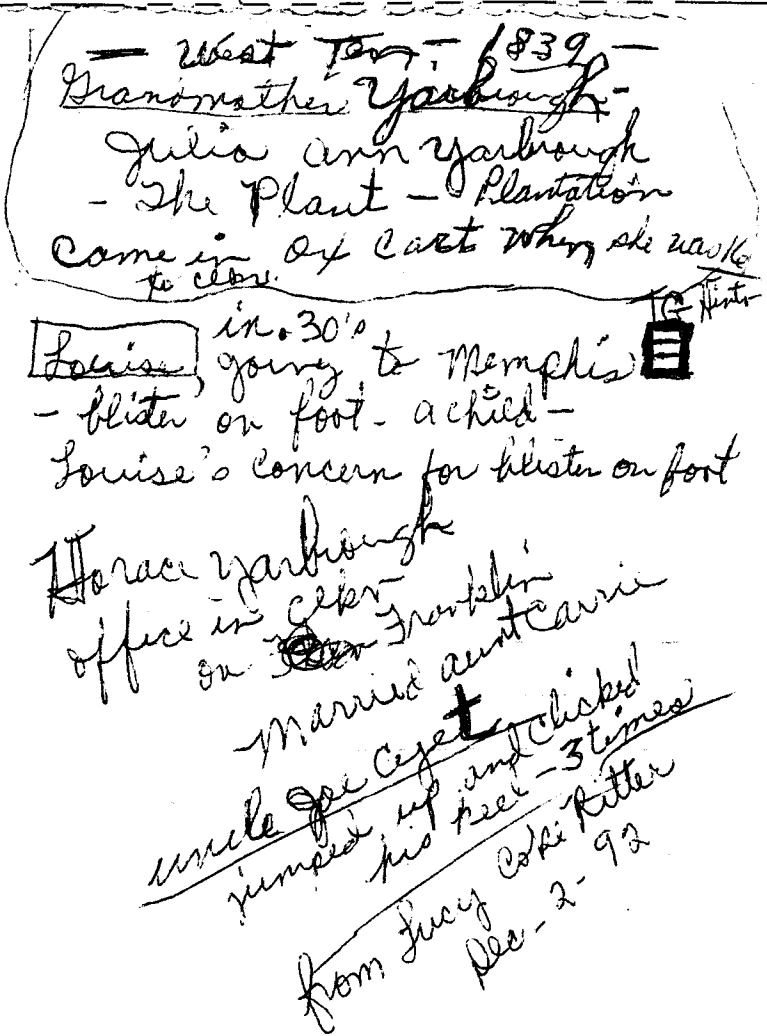 — West Ten — 1839 —
Grandmother Yarbrough -
Julia Ann Yarbrough
- The Plant - Plantation
Came in Ox Carts when she was 16
to Clbn.
in 30's
Louise, going to Memphis
- blister on foot - a child -
Louise's concern for blister on foot
Horace Yarbrough
office in Clbn
on Franklin
Married aunt Carrie
uncle Joe
jumped up and clicked
his heel - 3 times
from Lucy Coke Ritter
Dec - 2 - 92